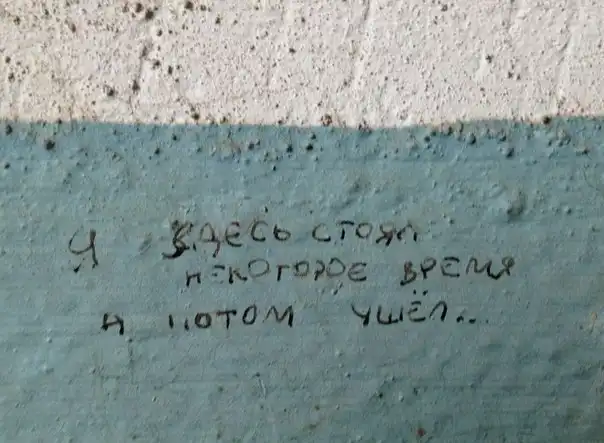 Я ЗДЕСЬ СТОЯЛ
НЕКОТОРОЕ ВРЕМЯ
А ПОТОМ УШЁЛ...